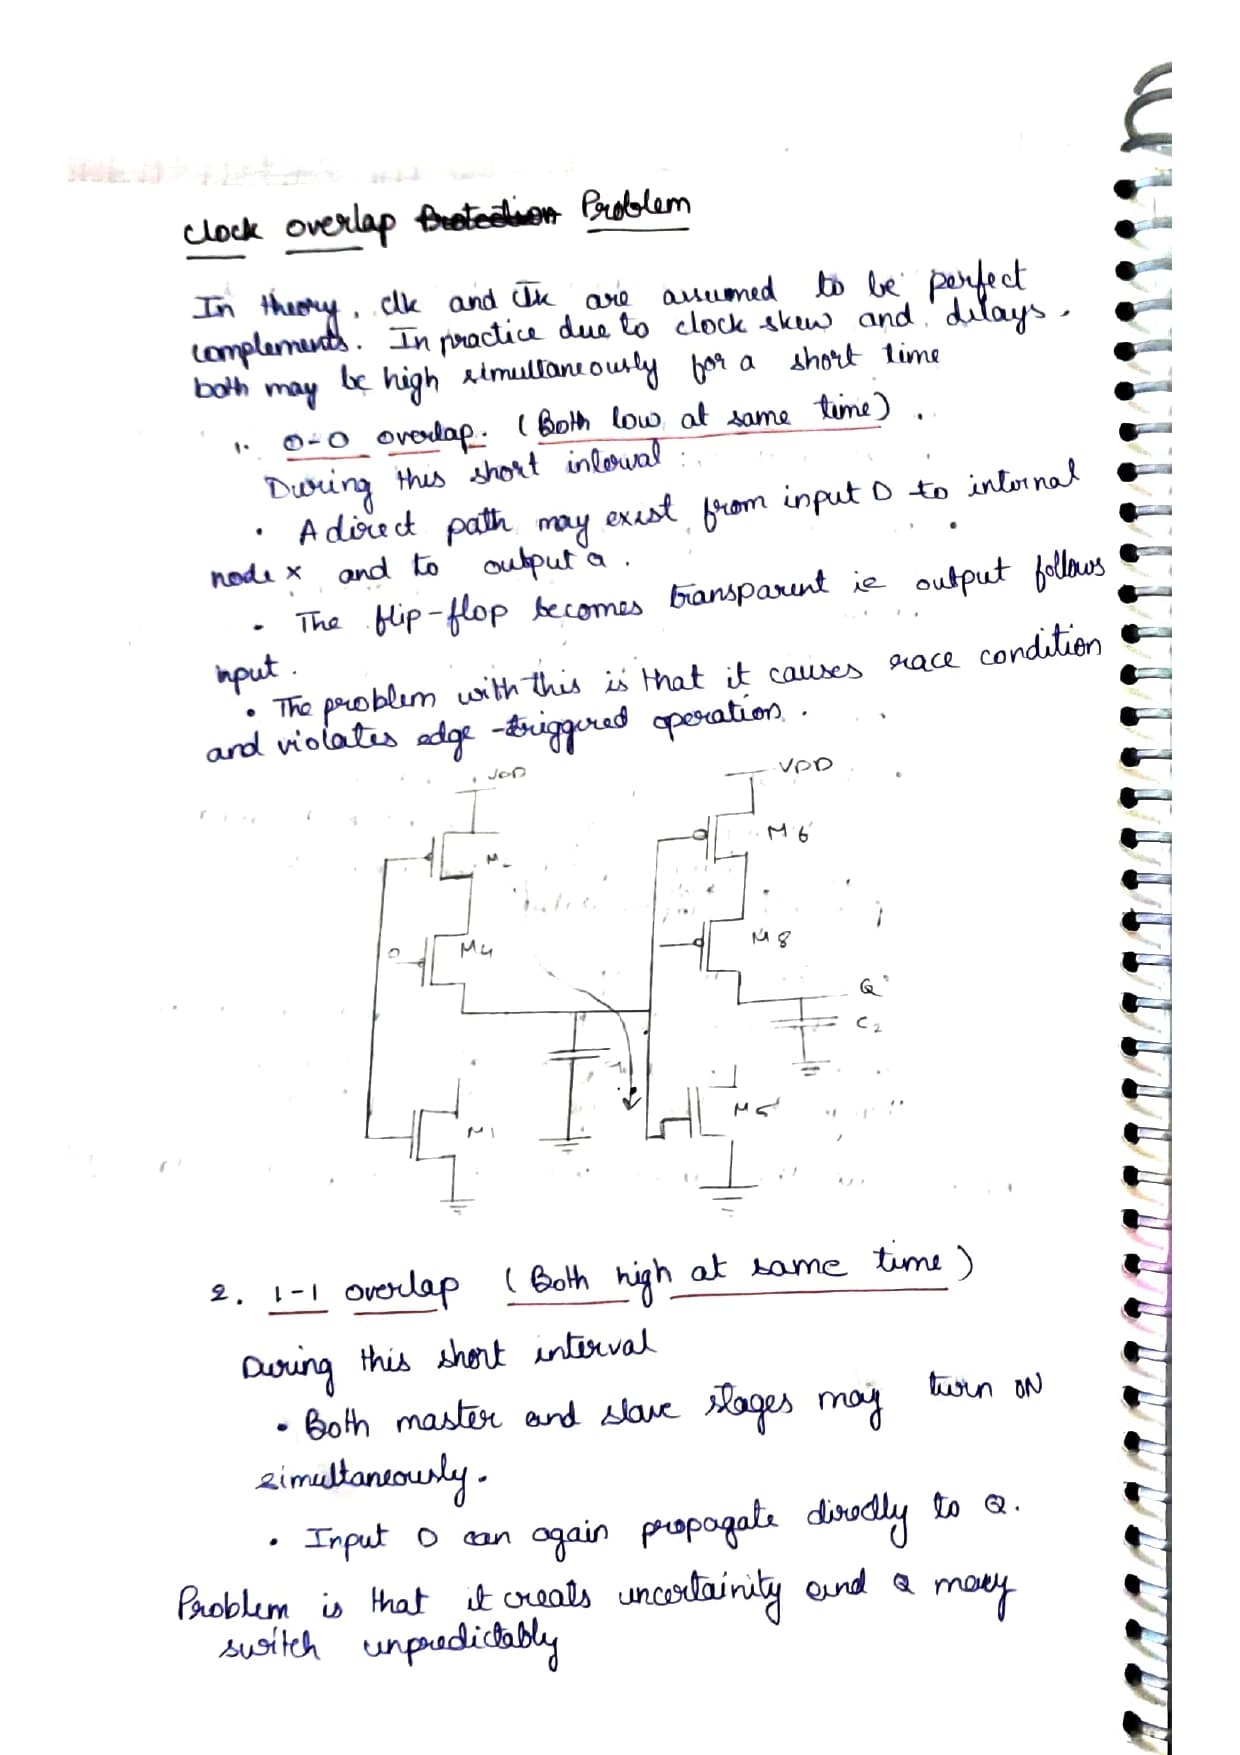 clock overlap Protection Problem
In theory, clk and clk are assumed to be perfect
complements. In practice due to clock skew and delays.
both may be high simultaneously for a short time
1. 0-0 overlap. (Both low at same time).
During this short interval:
• A direct path may exist from input D to internal
node x and to output Q.
• The flip-flop becomes transparent ie output follows
input.
• The problem with this is that it causes race condition
and violates edge-triggered operation.
VDD
VDD
M6
M4
M8
0
Q
C2
M5
M1
2. 1-1 overlap (Both high at same time)
During this short interval
• Both master and slave stages may turn ON
simultaneously.
• Input D can again propagate directly to Q.
Problem is that it creats uncertainity and Q may
switch unpredictably